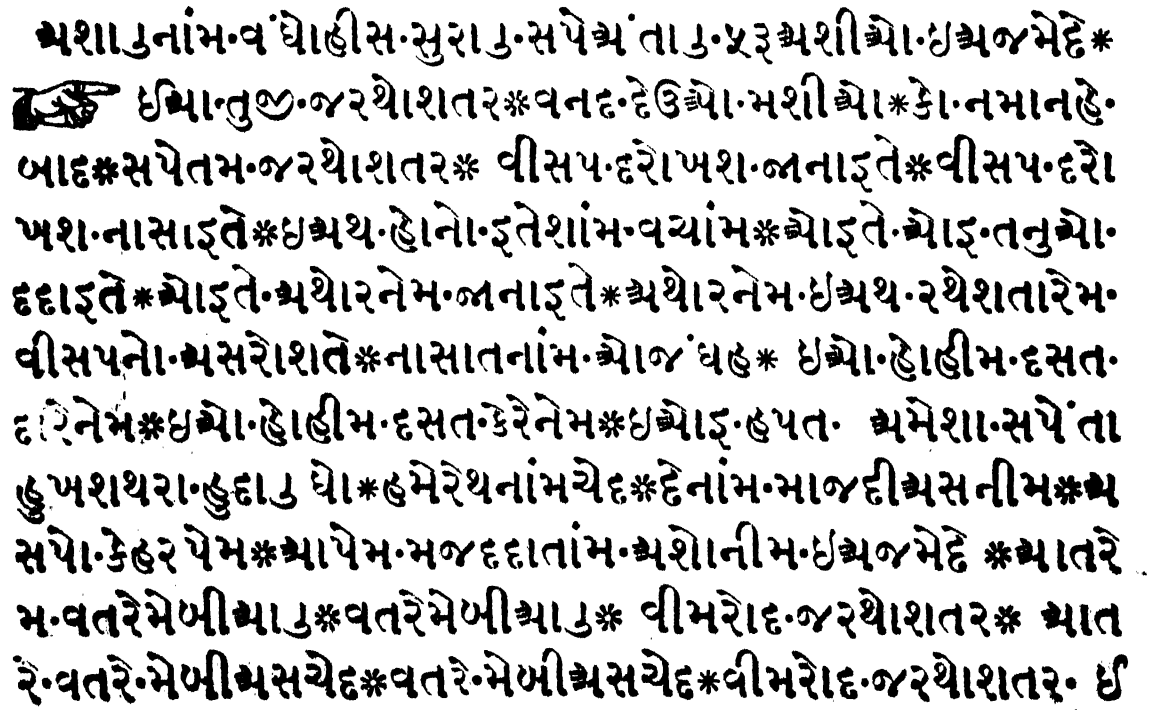 અશાઉનાંમ·વંઘોહીસ·સુરાઉ·સપેઅંતાઉ·૫રૂઅશીઓ·ઇઅજમેદે*
ઈઆ·તુજી·જરથોશતર*વનદ·દેઉઓ·મશીઓ*કો·નમાનહે·
બાદ*સપેતમ·જરથોશતર* વીસપ·દરોખશ·જાનાઇતે*વીસપ·દરો
ખશ·નાસાઇતે*ઇઅથ·હોનો·ઇતેશાંમ·વચાંમ*ઓઇતે·ઓઇ·તનુઓ·
દદાઇતે*ઓઇતે·અથોરનેમ·જાનાઇતે*અથોરનેમ·ઇઅથ·રથેશતારેમ·
વીસપનો·અસરોશતે*નાસાતનાંમ·ઓજંઘહ* ઇઓ·હોહીમ·દસત·
દારેનેમ*ઇઓ·હોહીમ·દસત·કેરેનેમ*ઇઓઇ·હપત· અમેશા·સપેંતા
હુખશથરા·હુદાઉ ઘો*હમેરેથનાંમચેદ*દેનાંમ·માજદીઅસનીમ*અ
સપો·કેહરપેમ*આપેમ·મજદદાતાંમ·અશોનીમ·ઇઅજમેદે *આતરે
મ·વતરેમેબીઆઉ*વતરેમેબીઆઉ* વીમરોદ·જરથોશતર* આત
રે·વતરે·મેબીઅસચેદ*વતરે·મેબીઅસચેદ*વીમરોદ·જરથોશતર· ઈ